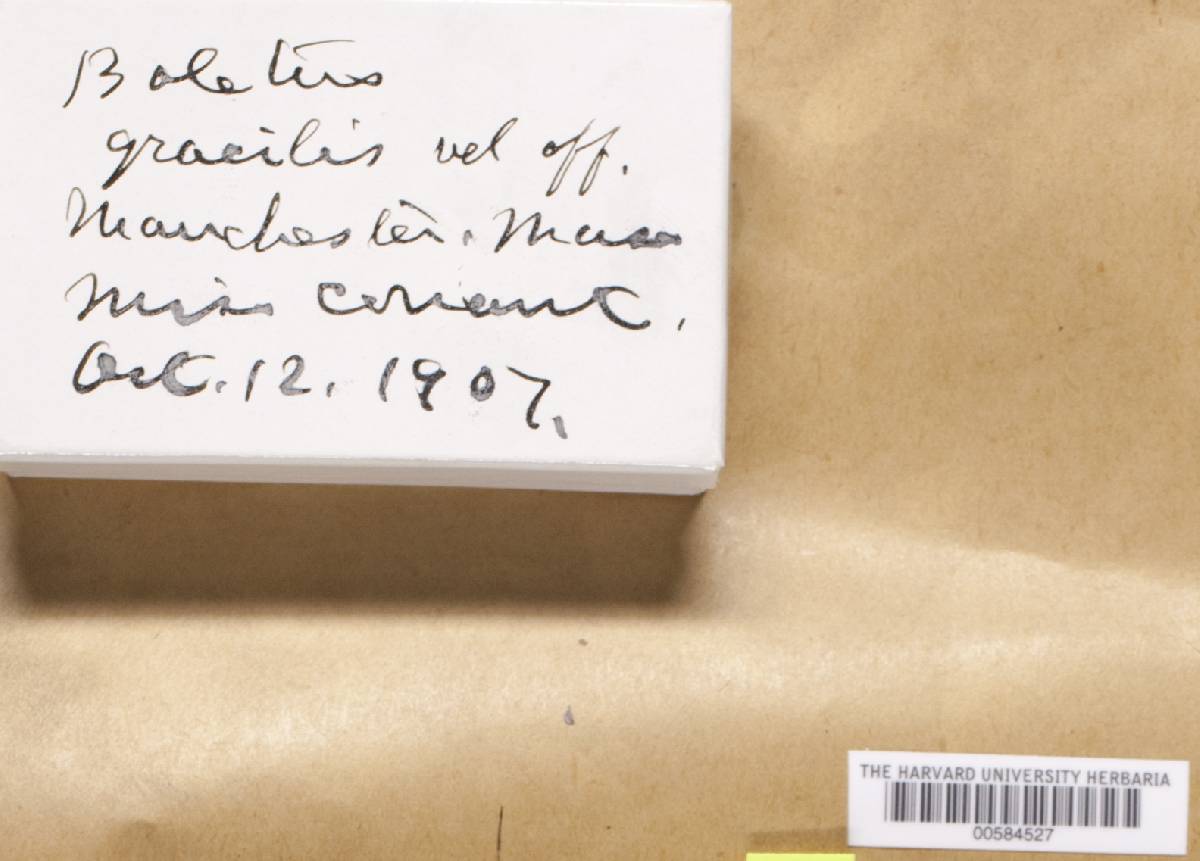 Boletus
gracilis vel aff.
Manchester. Mass
Miss Conant.
Oct. 12. 1907.
THE HARVARD UNIVERSITY HERBARIA
00584527